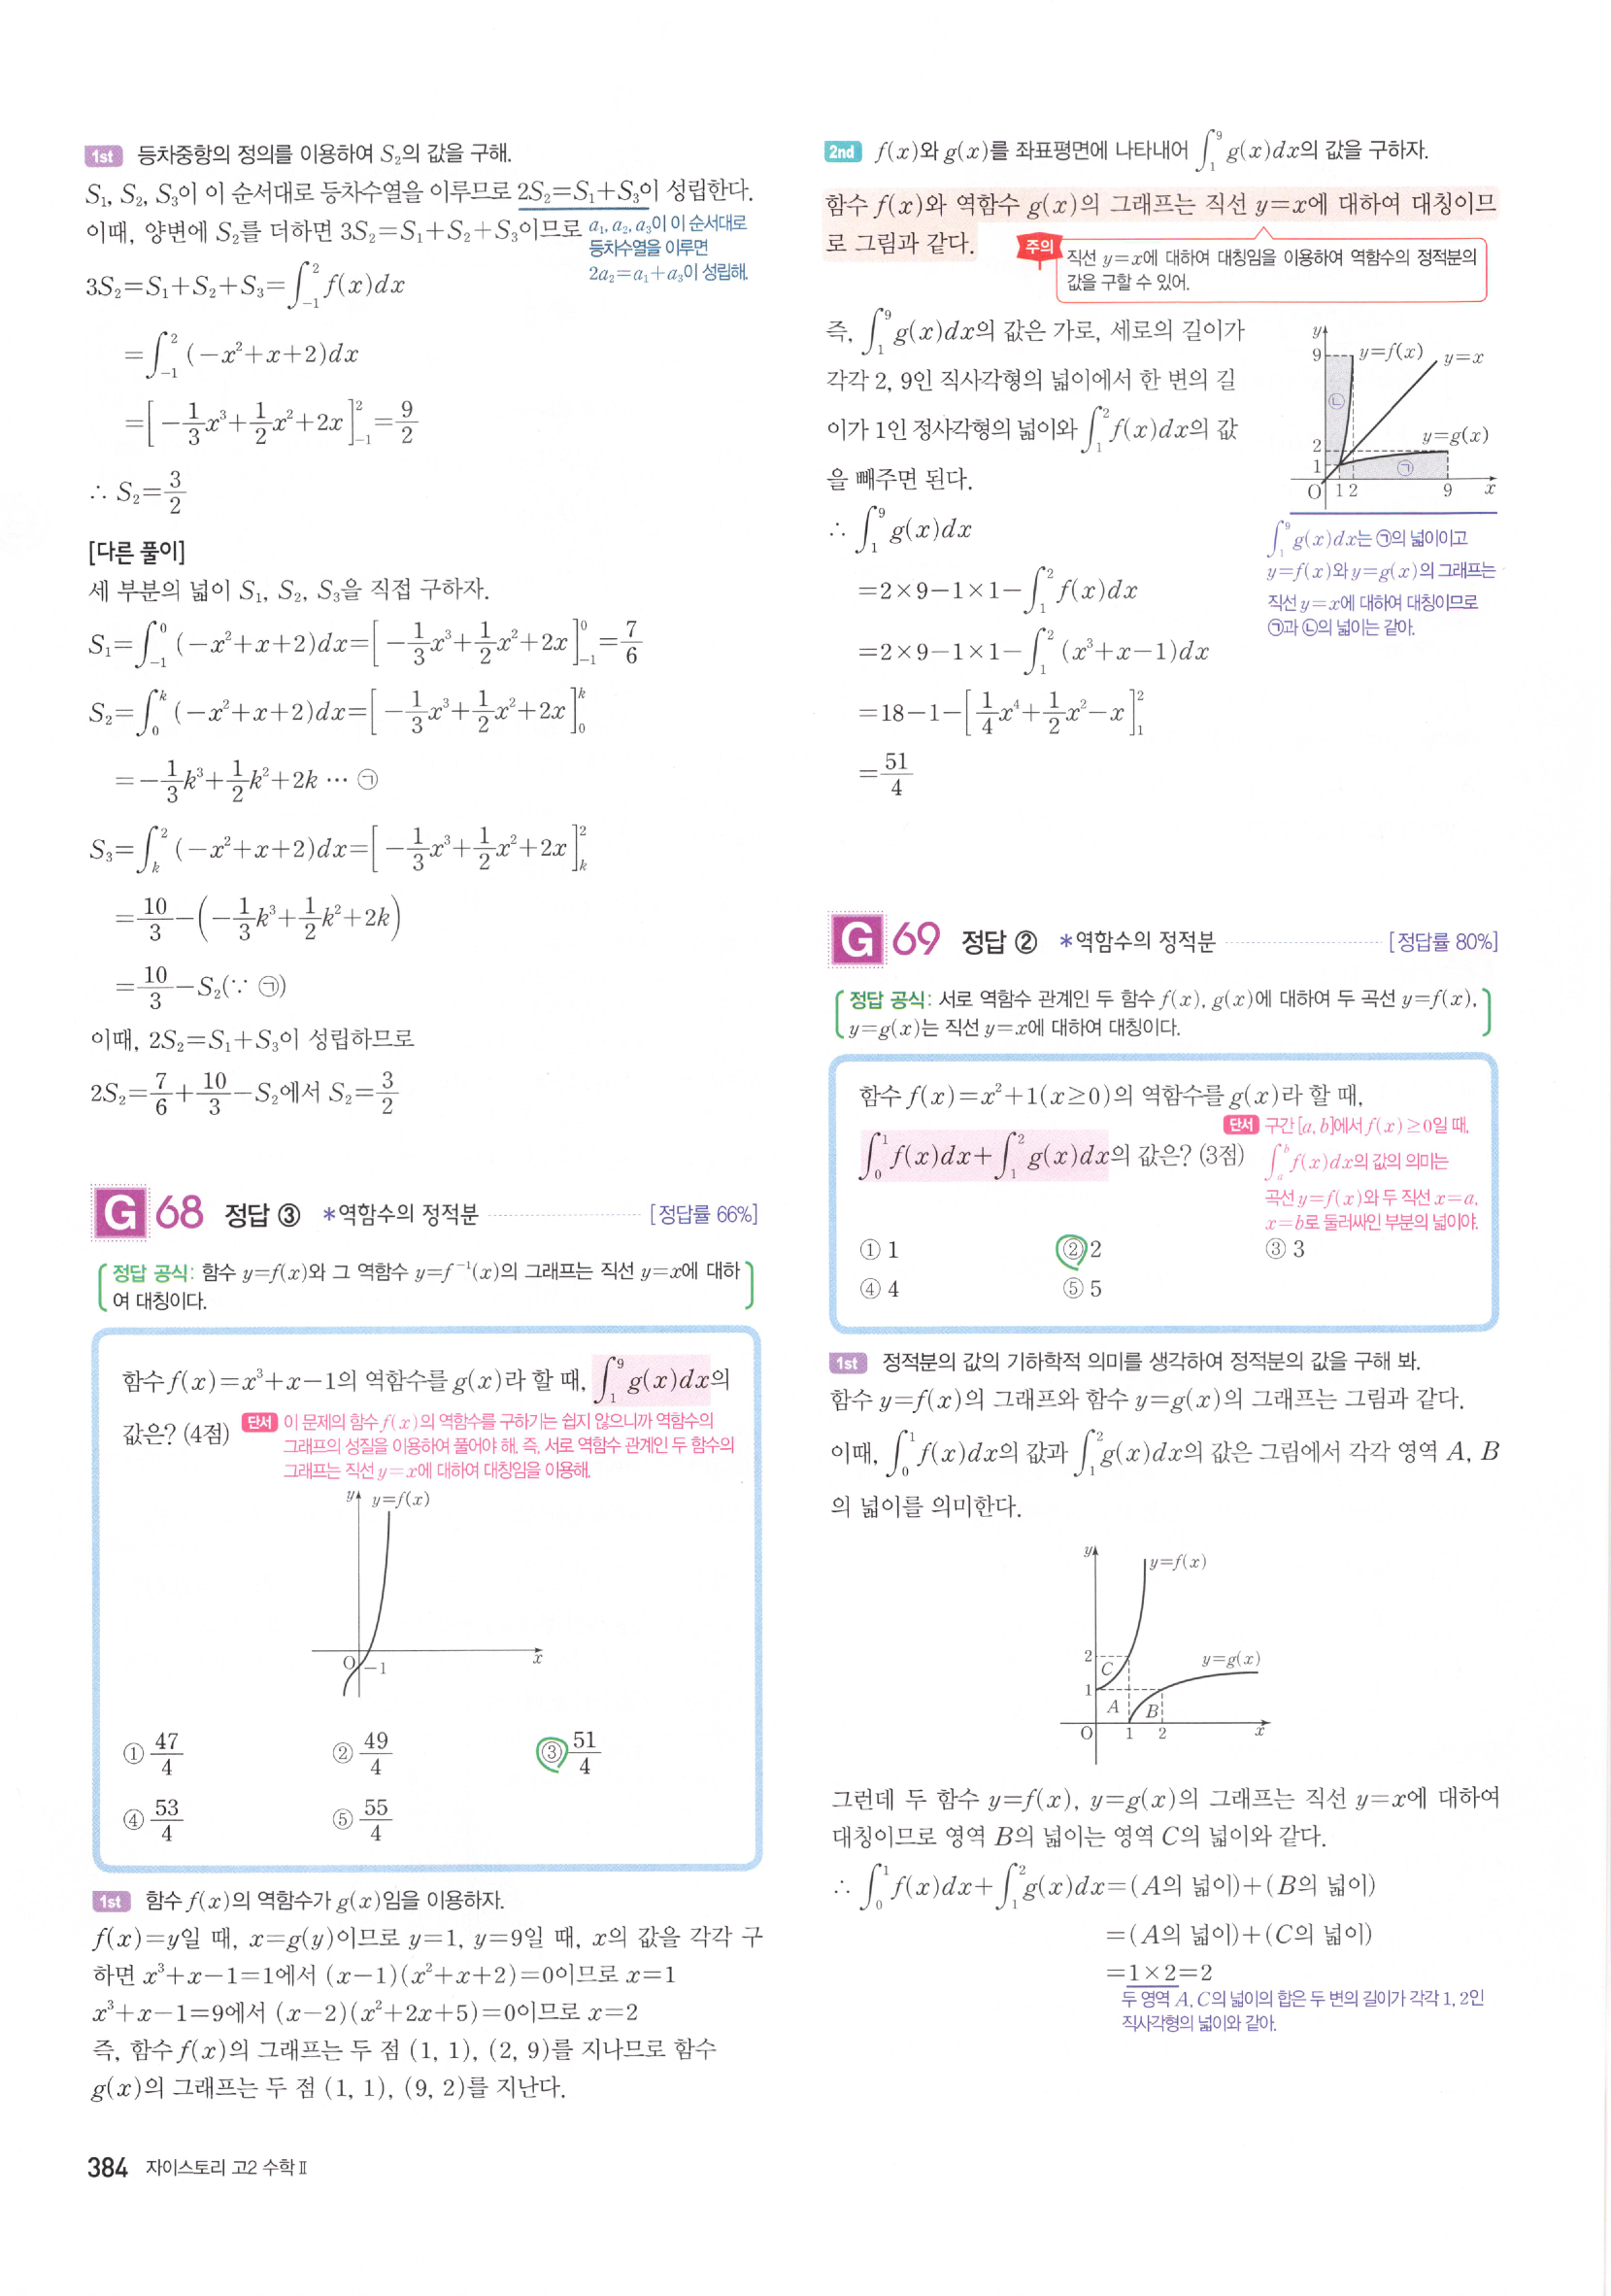 1st 등차중항의 정의를 이용하여 S₂의 값을 구해.
S₁, S₂, S₃이 이 순서대로 등차수열을 이루므로 2S₂=S₁+S₃이 성립한다.
이때, 양변에 S₂를 더하면 3S₂=S₁+S₂+S₃이므로
a₁, a₂, a₃이 이 순서대로
등차수열을 이루면
2a₂=a₁+a₃이 성립해.
3S₂=S₁+S₂+S₃=∫₋₁² f(x)dx
=∫₋₁² (−x²+x+2)dx
=[−1/3x³+1/2x²+2x]₋₁²=9/2
∴ S₂=3/2
[다른 풀이]
세 부분의 넓이 S₁, S₂, S₃을 직접 구하자.
S₁=∫₋₁⁰ (−x²+x+2)dx=[−1/3x³+1/2x²+2x]₋₁⁰=7/6
S₂=∫₀ᵏ (−x²+x+2)dx=[−1/3x³+1/2x²+2x]₀ᵏ
=−1/3k³+1/2k²+2k … ㉠
S₃=∫ₖ² (−x²+x+2)dx=[−1/3x³+1/2x²+2x]ₖ²
=10/3−(−1/3k³+1/2k²+2k)
=10/3−S₂(∵ ㉠)
이때, 2S₂=S₁+S₃이 성립하므로
2S₂=7/6+10/3−S₂에서 S₂=3/2
G 68 정답 ③ *역함수의 정적분 [정답률 66%]
정답 공식: 함수 y=f(x)와 그 역함수 y=f⁻¹(x)의 그래프는 직선 y=x에 대하
여 대칭이다.
함수 f(x)=x³+x−1의 역함수를 g(x)라 할 때, ∫₁⁹ g(x)dx의
값은? (4점)
단서 이 문제의 함수 f(x)의 역함수를 구하기는 쉽지 않으니까 역함수의
그래프의 성질을 이용하여 풀어야 해. 즉, 서로 역함수 관계인 두 함수의
그래프는 직선 y=x에 대하여 대칭임을 이용해.
y y=f(x)
O −1 x
① 47/4 ② 49/4 ③ 51/4
④ 53/4 ⑤ 55/4
1st 함수 f(x)의 역함수가 g(x)임을 이용하자.
f(x)=y일 때, x=g(y)이므로 y=1, y=9일 때, x의 값을 각각 구
하면 x³+x−1=1에서 (x−1)(x²+x+2)=0이므로 x=1
x³+x−1=9에서 (x−2)(x²+2x+5)=0이므로 x=2
즉, 함수 f(x)의 그래프는 두 점 (1, 1), (2, 9)를 지나므로 함수
g(x)의 그래프는 두 점 (1, 1), (9, 2)를 지난다.
384 자이스토리 고2 수학 Ⅱ
2nd f(x)와 g(x)를 좌표평면에 나타내어 ∫₁⁹ g(x)dx의 값을 구하자.
함수 f(x)와 역함수 g(x)의 그래프는 직선 y=x에 대하여 대칭이므
로 그림과 같다.
주의 직선 y=x에 대하여 대칭임을 이용하여 역함수의 정적분의
값을 구할 수 있어.
즉, ∫₁⁹ g(x)dx의 값은 가로, 세로의 길이가
각각 2, 9인 직사각형의 넓이에서 한 변의 길
이가 1인 정사각형의 넓이와 ∫₁² f(x)dx의 값
을 빼주면 된다.
y
9 y=f(x) y=x
㉡
2 y=g(x)
1 ㉠
O 1 2 9 x
∫₁⁹ g(x)dx는 ㉠의 넓이이고
y=f(x)와 y=g(x)의 그래프는
직선 y=x에 대하여 대칭이므로
㉠과 ㉡의 넓이는 같아.
∴ ∫₁⁹ g(x)dx
=2×9−1×1−∫₁² f(x)dx
=2×9−1×1−∫₁² (x³+x−1)dx
=18−1−[1/4x⁴+1/2x²−x]₁²
=51/4
G 69 정답 ② *역함수의 정적분 [정답률 80%]
정답 공식: 서로 역함수 관계인 두 함수 f(x), g(x)에 대하여 두 곡선 y=f(x),
y=g(x)는 직선 y=x에 대하여 대칭이다.
함수 f(x)=x²+1(x≥0)의 역함수를 g(x)라 할 때,
∫₀¹ f(x)dx+∫₁² g(x)dx의 값은? (3점)
단서 구간 [a, b]에서 f(x)≥0일 때,
∫ₐᵇ f(x)dx의 값의 의미는
곡선 y=f(x)와 두 직선 x=a,
x=b로 둘러싸인 부분의 넓이야.
① 1 ② 2 ③ 3
④ 4 ⑤ 5
1st 정적분의 값의 기하학적 의미를 생각하여 정적분의 값을 구해 봐.
함수 y=f(x)의 그래프와 함수 y=g(x)의 그래프는 그림과 같다.
이때, ∫₀¹ f(x)dx의 값과 ∫₁² g(x)dx의 값은 그림에서 각각 영역 A, B
의 넓이를 의미한다.
y
y=f(x)
2 C y=g(x)
1 A B
O 1 2 x
그런데 두 함수 y=f(x), y=g(x)의 그래프는 직선 y=x에 대하여
대칭이므로 영역 B의 넓이는 영역 C의 넓이와 같다.
∴ ∫₀¹ f(x)dx+∫₁² g(x)dx=(A의 넓이)+(B의 넓이)
=(A의 넓이)+(C의 넓이)
=1×2=2
두 영역 A, C의 넓이의 합은 두 변의 길이가 각각 1, 2인
직사각형의 넓이와 같아.